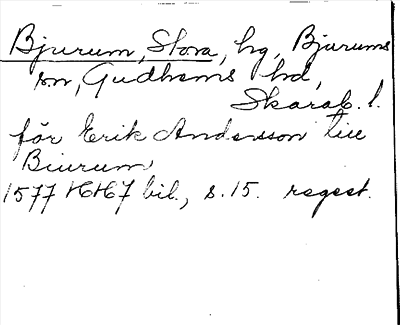 Bjurum, Stora, hg, Bjurums
sn, Gudhems hd,
Skarab. l.
för Erik Andersson till
Biurum
1577 16/67 bil., s. 15. regest.